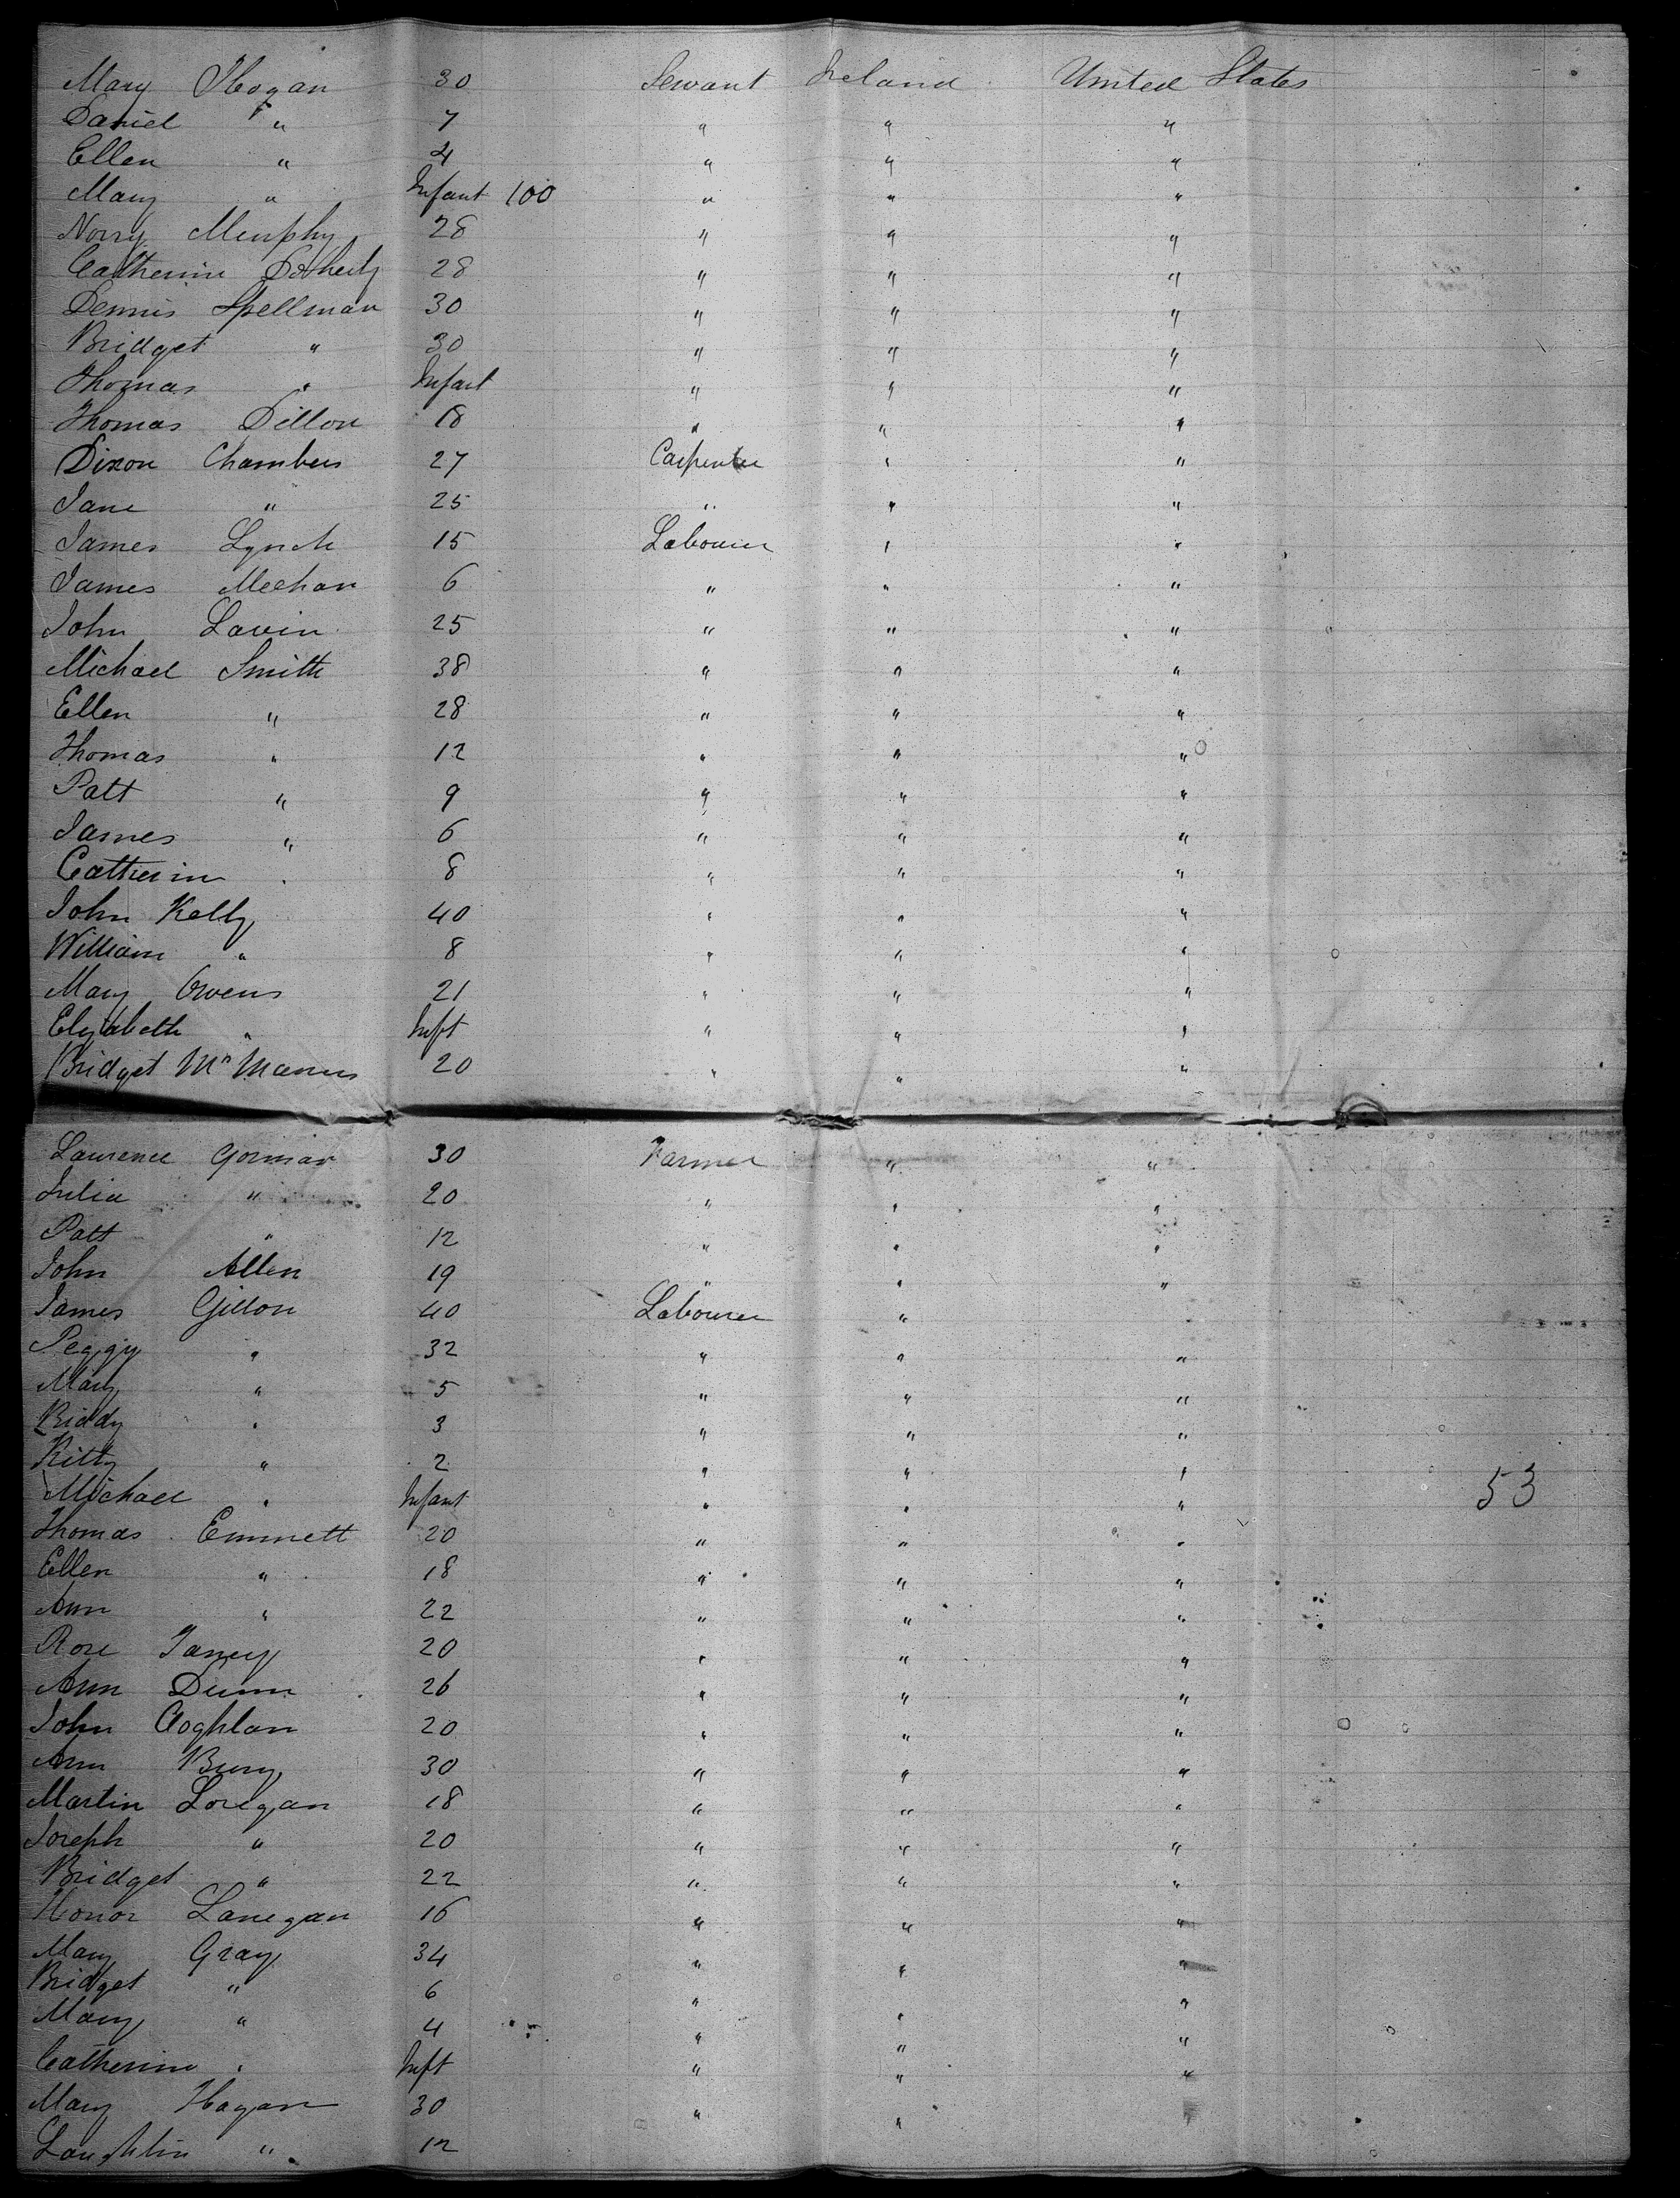 Mary Hogan 30 Servant Ireland United States
Daniel " 7 " " "
Ellen " 4 " " "
Mary " Infant 100 " " "
Norry Murphy 28 " " "
Catherine Doherty 28 " " "
Dennis Spellman 30 " " "
Bridget " 30 " " "
Thomas " Infant " " "
Thomas Dillon 18 " " "
Dixon Chambers 27 Carpenter " "
Jane " 25 " " "
James Lynch 15 Labourer " "
James Meehan 6 " " "
John Lavin 25 " " "
Michael Smith 38 " " "
Ellen " 28 " " "
Thomas " 12 " " "
Patt " 9 " " "
James " 6 " " "
Catherine " 8 " " "
John Kelly 40 " " "
William " 8 " " "
Mary Owens 21 " " "
Elizabeth " Inft " " "
Bridget McManus 20 " " "
Laurence Gorman 30 Farmer " "
Julia " 20 " " "
Patt " 12 " " "
John Allen 19 " " "
James Gillon 40 Labourer "
Peggy " 32 " " "
Mary " 5 " " "
Biddy " 3 " " "
Kitty " 2 " " "
Michael " Infant " " " 53
Thomas Emmett 20 " " "
Ellen " 18 " " "
Ann " 22 " " "
Rose Taney 20 " " "
Ann Dunn 26 " " "
John Coghlan 20 " " "
Ann Burry 30 " " "
Martin Loregan 18 " " "
Joseph " 20 " " "
Bridget " 22 " " "
Honor Lanegan 16 " " "
Mary Gray 34 " " "
Bridget " 6 " " "
Mary " 4 " " "
Catherine " Inft " " "
Mary Hagan 30 " " "
Laughlin " 12